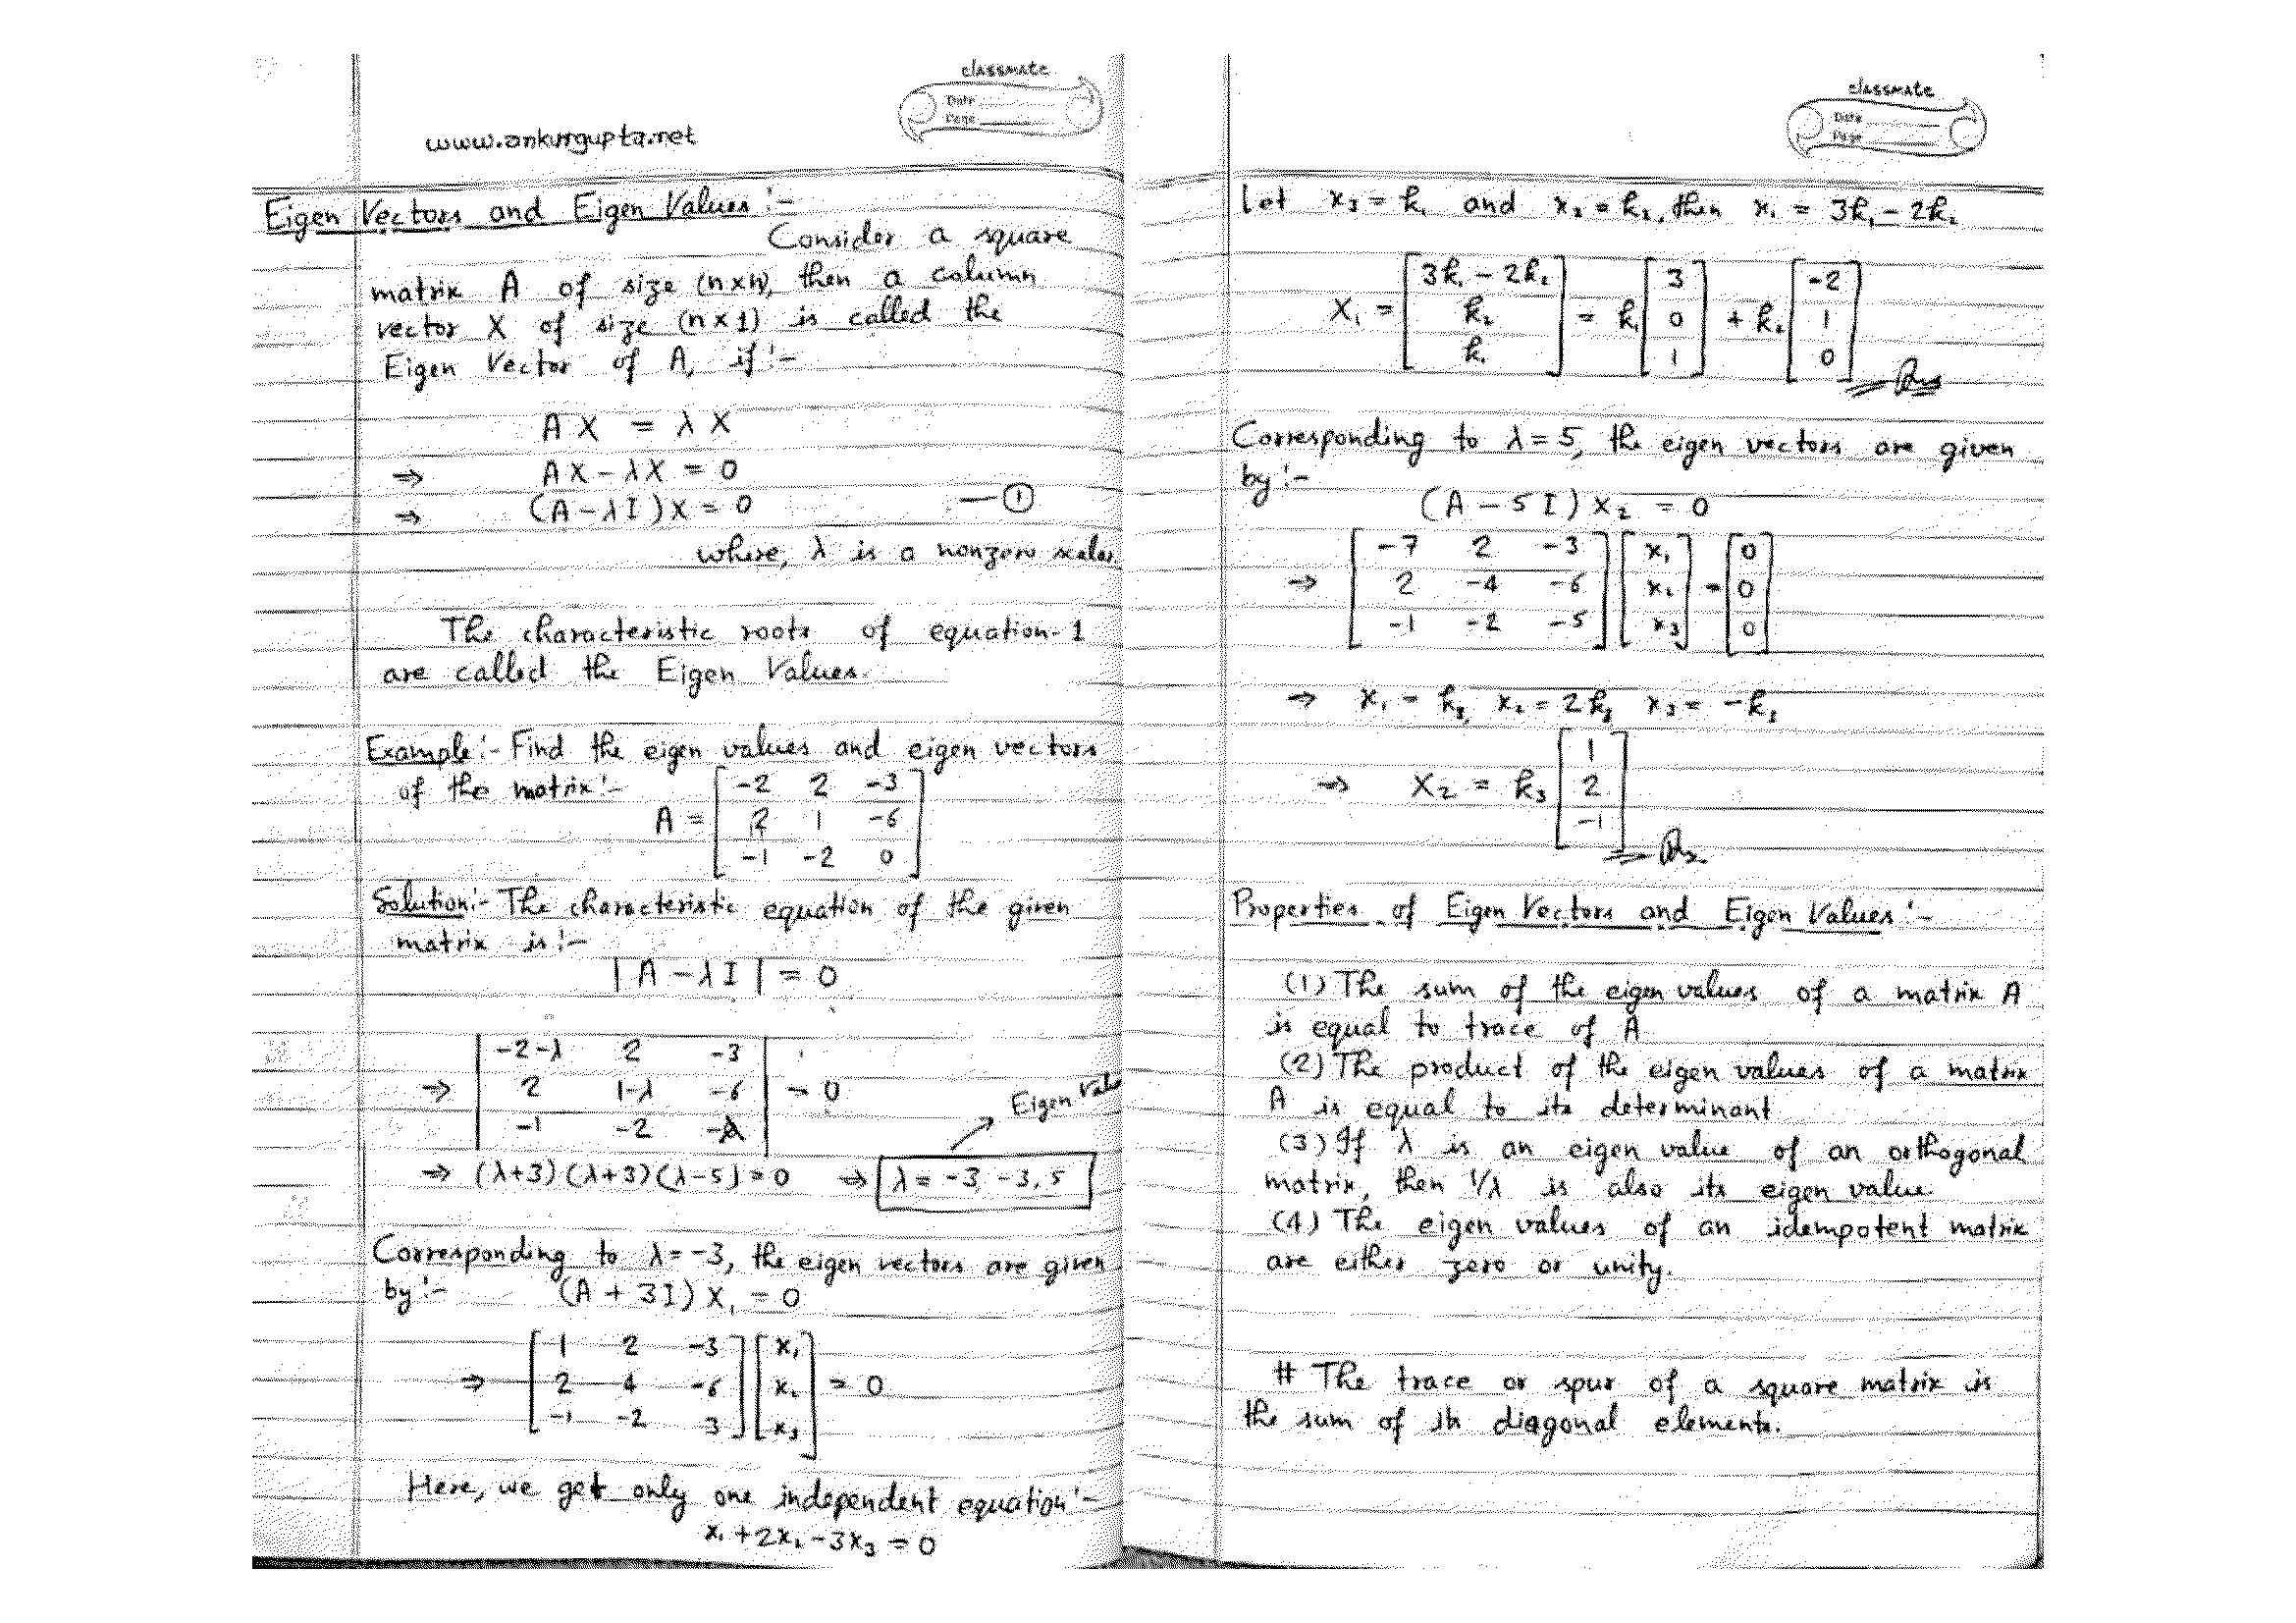 classmate
Date
Page
www.ankurgupta.net
Eigen Vectors and Eigen Values :-
Consider a square
matrix A of size (n×n), then a column
vector X of size (n×1) is called the
Eigen Vector of A, if :-
AX = λX
⇒ AX - λX = 0
⇒ (A - λI)X = 0 — ①
where, λ is a nonzero scalar.
The characteristic roots of equation-1
are called the Eigen Values.
Example :- Find the eigen values and eigen vectors
of the matrix :-
A = [ -2 2 -3
2 1 -6
-1 -2 0 ]
Solution :- The characteristic equation of the given
matrix is :-
| A - λI | = 0
⇒ | -2-λ 2 -3
2 1-λ -6
-1 -2 -λ | = 0
Eigen Val
⇒ (λ+3)(λ+3)(λ-5) = 0 ⇒ λ = -3, -3, 5
Corresponding to λ = -3, the eigen vectors are given
by :- (A + 3I) X₁ = 0
⇒ [ 1 2 -3
2 4 -6
-1 -2 3 ] [ x₁
x₂
x₃ ] = 0
Here, we get only one independent equation :-
x₁ + 2x₂ - 3x₃ = 0
classmate
Date
Page
Let x₃ = k₁ and x₂ = k₂, then x₁ = 3k₁ - 2k₂
X₁ = [ 3k₁ - 2k₂
k₂
k₁ ] = k₁ [ 3
0
1 ] + k₂ [ -2
1
0 ] Ans
Corresponding to λ = 5, the eigen vectors are given
by :-
(A - 5I) X₂ = 0
⇒ [ -7 2 -3
2 -4 -6
-1 -2 -5 ] [ x₁
x₂
x₃ ] = [ 0
0
0 ]
⇒ x₁ = k₃, x₂ = 2k₃ x₃ = -k₃
⇒ X₂ = k₃ [ 1
2
-1 ] Ans.
Properties of Eigen Vectors and Eigen Values :-
(1) The sum of the eigen values of a matrix A
is equal to trace of A
(2) The product of the eigen values of a matrix
A is equal to its determinant
(3) If λ is an eigen value of an orthogonal
matrix, then 1/λ is also its eigen value.
(4) The eigen values of an idempotent matrix
are either zero or unity.
# The trace or spur of a square matrix is
the sum of its diagonal elements.